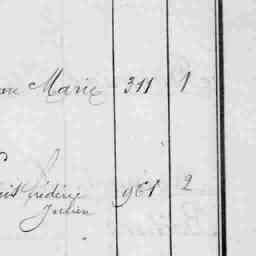 Marie 311 1
Frédéric 961 2
Julien